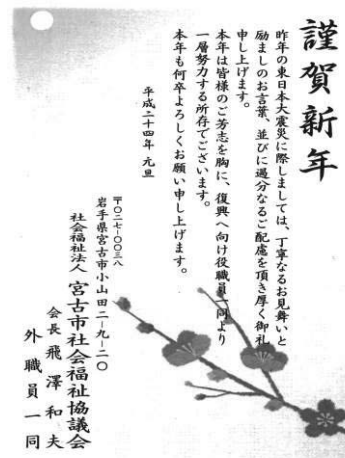 謹賀新年
昨年の東日本大震災に際しましては、丁寧なるお見舞いと
励ましのお言葉、並びに過分なるご配慮を頂き厚く御礼
申し上げます。
本年は皆様のご芳志を胸に、復興へ向け役職員一同より
一層努力する所存でございます。
本年も何卒よろしくお願い申し上げます。
平成二十四年 元旦
〒〇二七-〇〇三八
岩手県宮古市小山田二-九-二〇
社会福祉法人 宮古市社会福祉協議会
会長 飛澤和夫
外職員一同